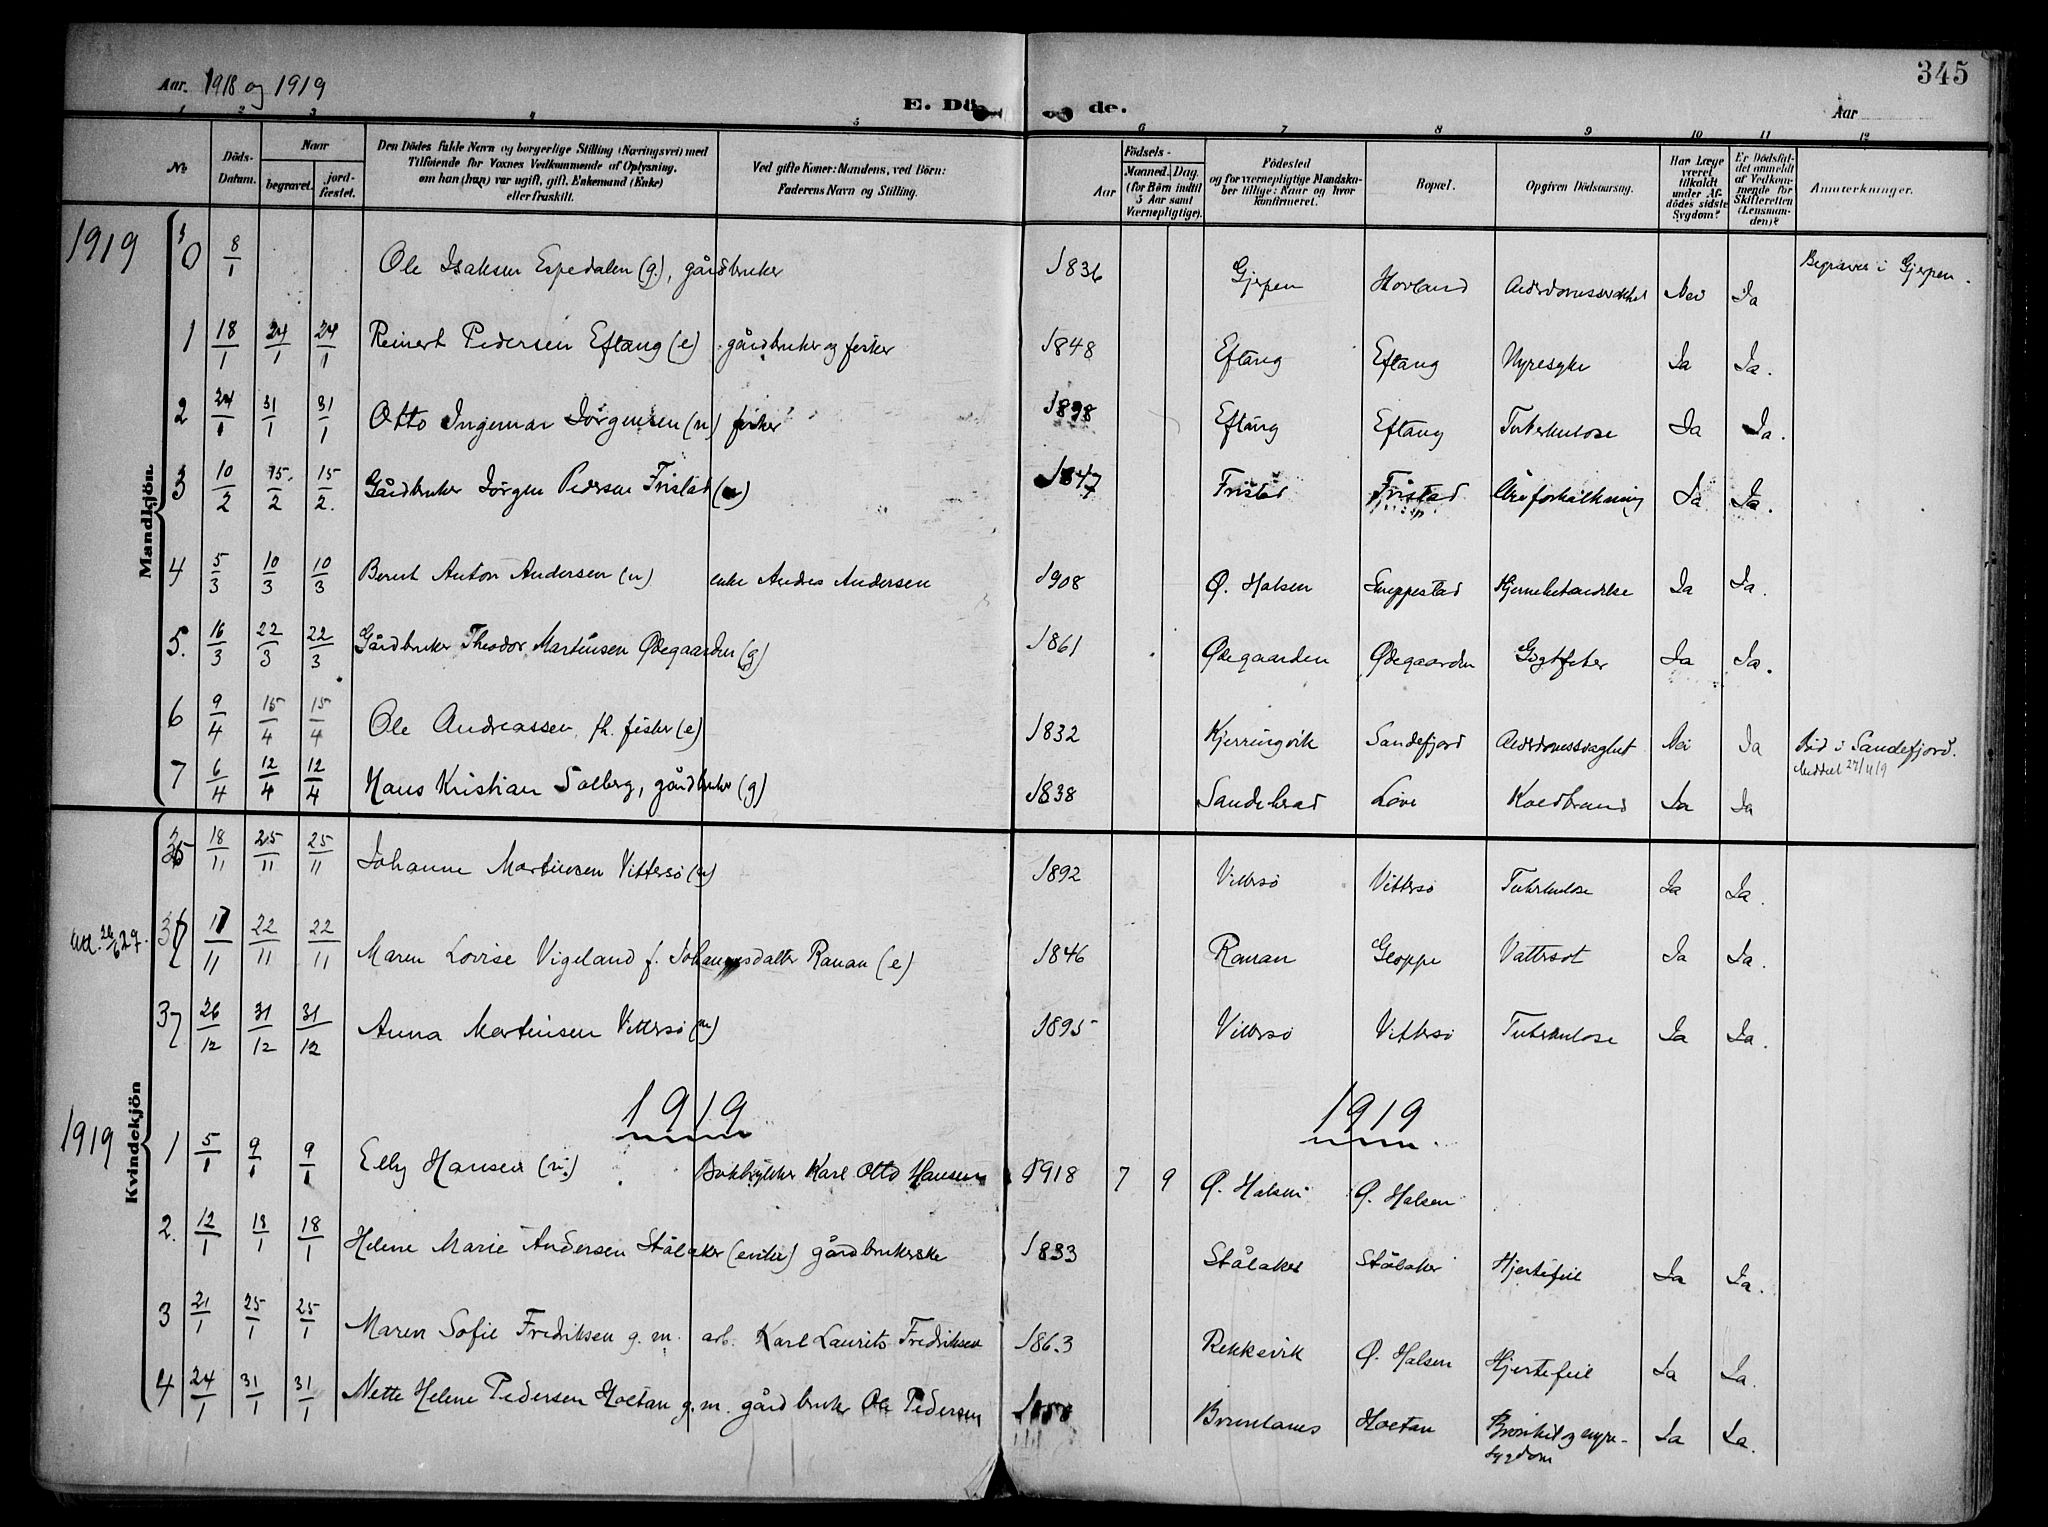 345
Aar. 1918 og 1919
E. Dö de.
Aar
1 2 3 4 5 6 7 8 9 10 11 12
No
Döds-Datum.
Naar
begravet.
jord-fæstet.
Den Dödes fulde Navn og borgerlige Stilling (Næringsvei) med
Tilføiende for Voxnes Vedkommende af Oplysning,
om han (hun) var ugift, gift, Enkemand (Enke)
eller fraskilt.
Ved gifte Koner: Mandens, ved Börn:
Faderens Navn og Stilling.
Födsels-
Aar
Maaned. Dag.
(for Börn indtil
5 Aar samt
Værnepligtige).
Födested
og for værnepligtige Mandska-
ber tillige: Naar og hvor
konfirmeret.
Bopæl.
Opgiven Dödsaarsag.
Har Læge
været
tilkaldt
under Af-
dödes sidste
Sygdom?
Er Dödsfal-
det anmeldt
af Vedkom-
mende for
Skifteretten
(Lensman-
den)?
Anmærkninger.
Mandkjön.
1919
0 8/1 Ole Isaksen Espedalen (g.), gårdbruker 1836 Gjerpen Hovland Alderdomssvakhet Nei Ja Begraves i Gjerpen.
1 18/1 24/1 24/1 Reinert Pedersen Eftang (e) gårdbruker og fisker 1848 Eftang Eftang Nyresyke Ja Ja.
2 24/1 31/1 31/1 Otto Ingemar Jørgensen (u) fisker 1898 Eftang Eftang Tuberkulose Ja Ja.
3 10/2 15/2 15/2. Gårdbruker Jørgen Pedersen Fristad (u) 1847 Fristad Fristad Åreforkalkning Ja Ja.
4 5/3 10/3 10/3 Bernt Anton Andersen (u) enke Andres Andersen 1908 Ø. Halsen Hjernebetændelse Ja Ja.
5. 16/3 22/3 22/3 Gårdbruker Theodor Martinsen Ødegaarden (g) 1861 Ødegaarden Ødegaarden Gigtfeber Ja Ja.
6 9/4 15/4 15/4 Ole Andreassen, fh. fisker (e) 1832 Kjerringvik Sandefjord Alderdomssvaghet Nei Ja Död i Sandefjord.
Meddeel 27/4 19
7 6/4 12/4 12/4 Hans Kristian Solberg, gårdbruker (g) 1838 Sandeherad Löve Koldbrand Ja Ja
Kvindekjön
35 18/11 25/11 25/11 Johanne Martinsen Vittersø (u) 1892 Vittersø Vittersø Tuberkulose Ja Ja.
36 17/11 22/11 22/11 Maren Lovise Vigeland f. Johannesdatter Ranan (e) 1846 Ranan Gloppe Vattersot Ja Ja.
37 26/12 31/12 31/12 Anna Martinsen Vittersø (u) 1895 Vittersø Vittersø Tuberkulose Ja Ja.
1919 1919
1919
1 5/1 9/1 9/1 Elly Hansen Karl Otto Hansen 1918 7 9 Ø. Halsen Ø. Halsen
2. 12/1 18/1 18/1 Helene Marie Andersen Stålaker (enke) gårdbrukerske 1833 Stålaker Stålaker Hjertefeil Ja Ja.
3 21/1 25/1 25/1 Maren Sofie Fredriksen g. m. arb. Karl Laurits Fredriksen 1863 Rekkevik Ø. Halsen Hjertefeil Ja Ja.
4 24/1 31/1 31/1 Nette Helene Pedersen Holtan g. m. gårdbruker Ole Pedersen Brunlanes Holtan Bronkit og nyre-
sygdom Ja Ja.